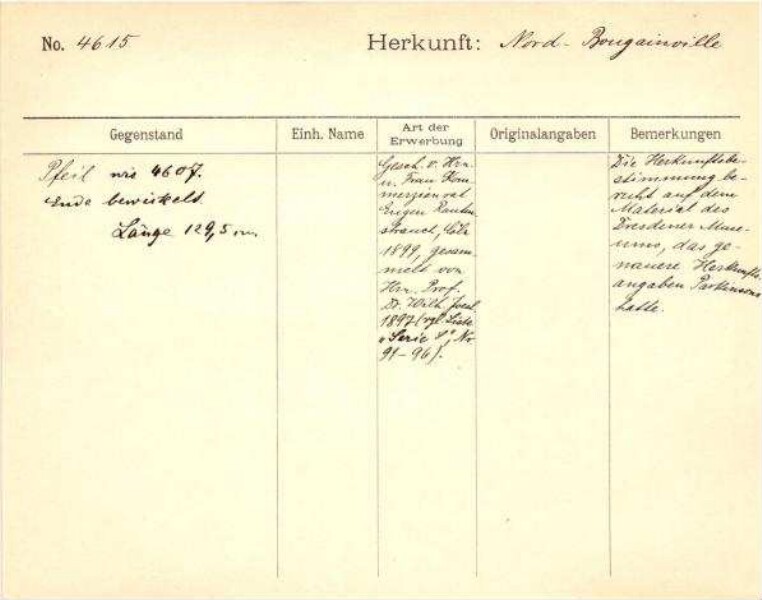 No. 4615
Herkunft: Nord-Bougainville
Gegenstand
Einh. Name
Art der Erwerbung
Originalangaben
Bemerkungen
Pfeil wie 4607.
Ende bewickelt.
Länge 129,5 cm.
Gesch. v. Hrn.
u. Frau Kom-
merzienrat
Eugen Rauten-
strauch, Cöln
1899, gesam-
melt von
Hrn. Prof.
Dr. Wilh. Joest
1897 (vgl. Liste
"Serie S", No
91-96).
Die Herkunftsbe-
stimmung be-
ruht auf dem
Material des
Dresdener Muse-
ums, das ge-
nauere Herkunfts-
angaben Parkinsons
hatte.